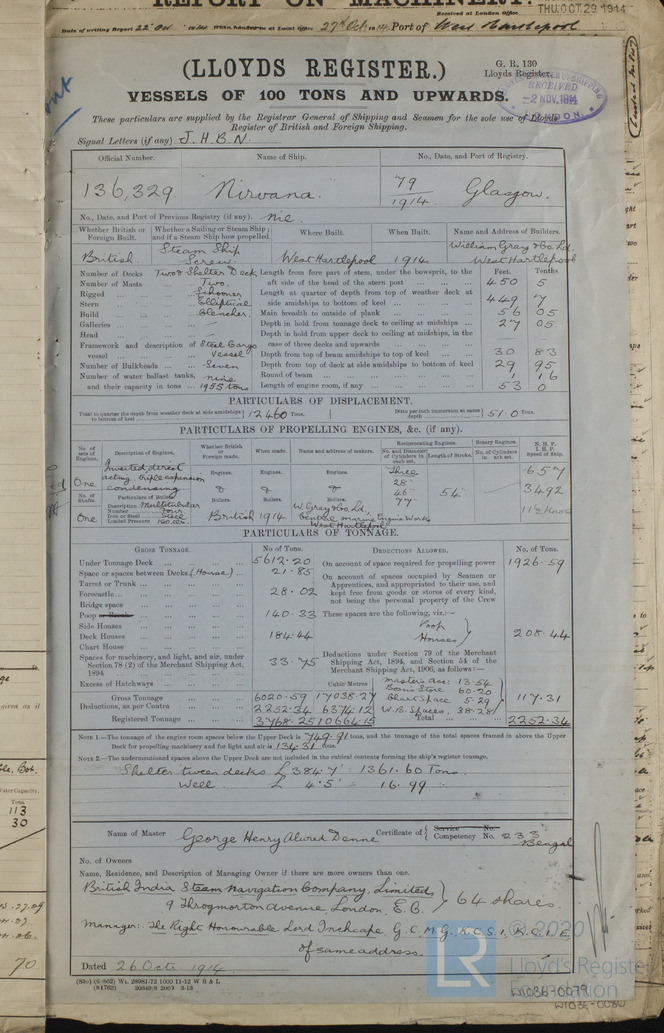 REPORT ON MACHINERY.
Received at London Office THU. OCT. 29 1914
Date of writing Report 22 Oct 1914 When handed in at Local Office 27th Oct. 1914 Port of West Hartlepool
(LLOYDS REGISTER.)
G. R. 130
Lloyds Register.
VESSELS OF 100 TONS AND UPWARDS.
RECEIVED
2 NOV. 1914
These particulars are supplied by the Registrar General of Shipping and Seamen for the sole use of Lloyds
Register of British and Foreign Shipping.
Signal Letters (if any) J.H.B.N.
Official Number. Name of Ship. No., Date, and Port of Registry.
136,329. "Nirvana." 79/1914 Glasgow.
No., Date, and Port of Previous Registry (if any). nil
Whether British or Foreign Built. Whether a Sailing or Steam Ship; and if a Steam Ship how propelled. Where Built. When Built. Name and Address of Builders.
British Steam Ship Screw. West Hartlepool 1914. William Gray & Co. Ld. West Hartlepool
Number of Decks Two & Shelter Deck Length from fore part of stem, under the bowsprit, to the aft side of the head of the stern post Feet. Tenths 450 5
Number of Masts Two.
Rigged Schooner Length at quarter of depth from top of weather deck at side amidships to bottom of keel 449 7
Stern Elliptical
Build Clencher. Main breadth to outside of plank 56 05
Galleries — Depth in hold from tonnage deck to ceiling at midships 27 05
Head — Depth in hold from upper deck to ceiling at midships, in the case of three decks and upwards —
Framework and description of vessel Steel Cargo Vessel Depth from top of beam amidships to top of keel 30 83
Number of Bulkheads Seven Depth from top of deck at side amidships to bottom of keel 29 95
Number of water ballast tanks, nine Round of beam 1 16
and their capacity in tons 1955 tons Length of engine room, if any 53 0
PARTICULARS OF DISPLACEMENT.
Total to quarter the depth from weather deck at side amidships to bottom of keel 12460 Tons. Ditto per inch immersion at same depth 51.0 Tons.
PARTICULARS OF PROPELLING ENGINES, &c. (if any).
No. of sets of Engines. Description of Engines. Whether British or Foreign made. When made. Name and address of makers. Reciprocating Engines. No. and Diameter of Cylinders in each set. Length of Stroke. Rotary Engines. No. of Cylinders in each set. N.H.P. I.H.P. Speed of Ship.
One Inverted direct acting triple expansion condensing Engines. Engines. Engines. Three 28" 46" 77" 54" 657
No. of Shafts. Particulars of Boilers & & & 3492
One Description Multitubular Number Four Iron or Steel Steel Loaded Pressure 180 lbs. Boilers. British Boilers. 1914 Boilers. W Gray & Co. Ld., Central Marine Engine Works West Hartlepool 11½ Knots
PARTICULARS OF TONNAGE.
GROSS TONNAGE. No of Tons. DEDUCTIONS ALLOWED. No. of Tons.
Under Tonnage Deck 5612.20 On account of space required for propelling power 1926.59
Space or spaces between Decks (House) 21.85 On account of spaces occupied by Seamen or Apprentices, and appropriated to their use, and kept free from goods or stores of every kind, not being the personal property of the Crew
Turret or Trunk
Forecastle 28.02
Bridge space
Poop or Break 140.33 These spaces are the following, viz.:—
Side Houses Poop
Deck Houses 184.44 Houses 208.44
Chart House
Spaces for machinery, and light, and air, under Section 78 (2) of the Merchant Shipping Act, 1894 33.75 Deductions under Section 79 of the Merchant Shipping Act, 1894, and Section 54 of the Merchant Shipping Act, 1906, as follows:—
Excess of Hatchways Cubic Metres Masters acc: 13.54
Gross Tonnage 6020.59 17038.27 Boatn's Store 60.20
Deductions, as per Contra 2252.34 6374.12 Chart Space 5.29 117.31
Registered Tonnage 3768.25 10664.15 W.B. Spaces. 38.28 Total 2252.34
NOTE 1.—The tonnage of the engine room spaces below the Upper Deck is 749.91 tons, and the tonnage of the total spaces framed in above the Upper
Deck for propelling machinery and for light and air is 134.31 tons.
NOTE 2.—The undermentioned spaces above the Upper Deck are not included in the cubical contents forming the ship's register tonnage.
Shelter tween decks L 384.7' = 1361.60 Tons.
Well L 4.5' = 16.99 "
Name of Master George Henry Alured Denne Certificate of Service No. Competency No. 233 Bengal
No. of Owners
Name, Residence, and Description of Managing Owner if there are more owners than one.
British India Steam Navigation Company, Limited
9 Throgmorton Avenue, London, E.C. 64 shares.
Manager: The Right Honourable Lord Inchcape, G.C.M.G., K.C.S.I., K.C.I.E.
of same address.
Dated 26 Octr 1914.
© 2020
LR
Lloyd's Register
Foundation
W1036-0079
W1036-0080
113
30
70